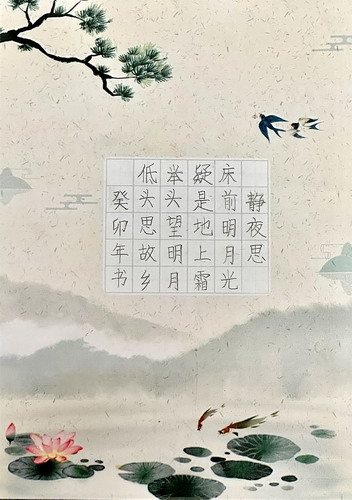 静夜思
床前明月光
疑是地上霜
举头望明月
低头思故乡
癸卯年书